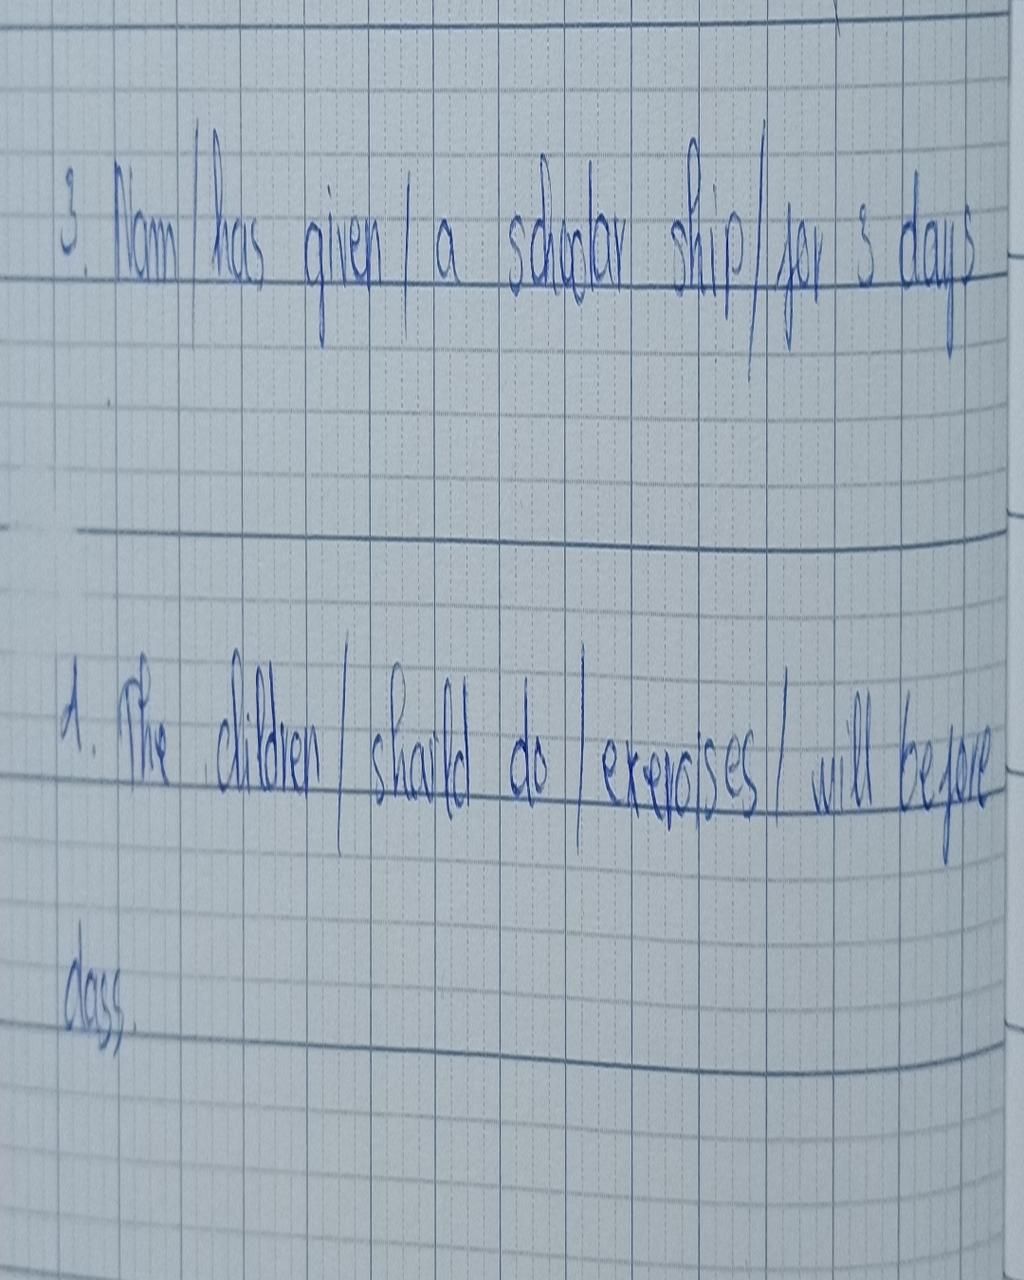 3. Nam / has given / a scholar ship / for 3 days
1. The children / should do / exercises / will before
class.